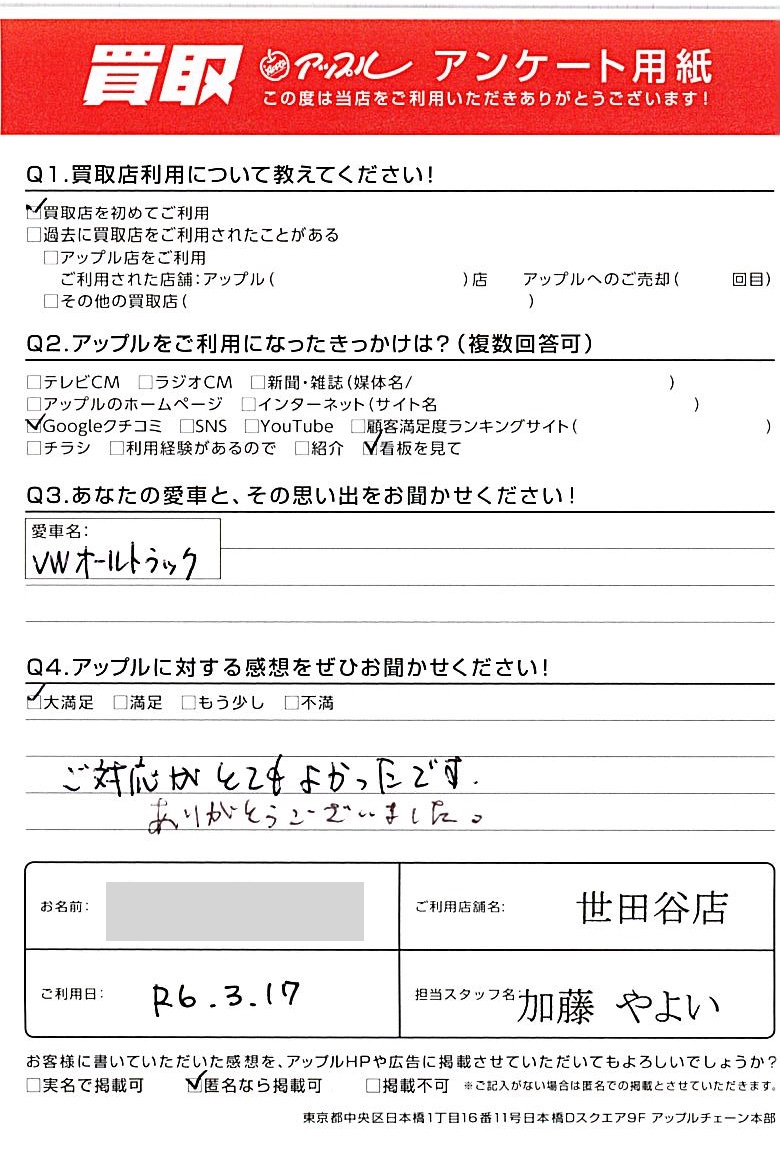 買取 アップル アンケート用紙
この度は当店をご利用いただきありがとうございます!
Q1.買取店利用について教えてください!
☑買取店を初めてご利用
□過去に買取店をご利用されたことがある
□アップル店をご利用
ご利用された店舗:アップル( )店 アップルへのご売却( 回目)
□その他の買取店( )
Q2.アップルをご利用になったきっかけは?(複数回答可)
□テレビCM □ラジオCM □新聞・雑誌(媒体名/ )
□アップルのホームページ □インターネット(サイト名 )
☑Googleクチコミ □SNS □YouTube □顧客満足度ランキングサイト( )
□チラシ □利用経験があるので □紹介 ☑看板を見て
Q3.あなたの愛車と、その思い出をお聞かせください!
愛車名:
VWオールトラック
Q4.アップルに対する感想をぜひお聞かせください!
☑大満足 □満足 □もう少し □不満
ご対応がとてもよかったです.
ありがとうございました。
お名前: ご利用店舗名: 世田谷店
ご利用日: R6.3.17 担当スタッフ名: 加藤 やよい
お客様に書いていただいた感想を、アップルHPや広告に掲載させていただいてもよろしいでしょうか?
□実名で掲載可 ☑匿名なら掲載可 □掲載不可 ※ご記入がない場合は匿名での掲載とさせていただきます。
東京都中央区日本橋1丁目16番11号日本橋Dスクエア9F アップルチェーン本部